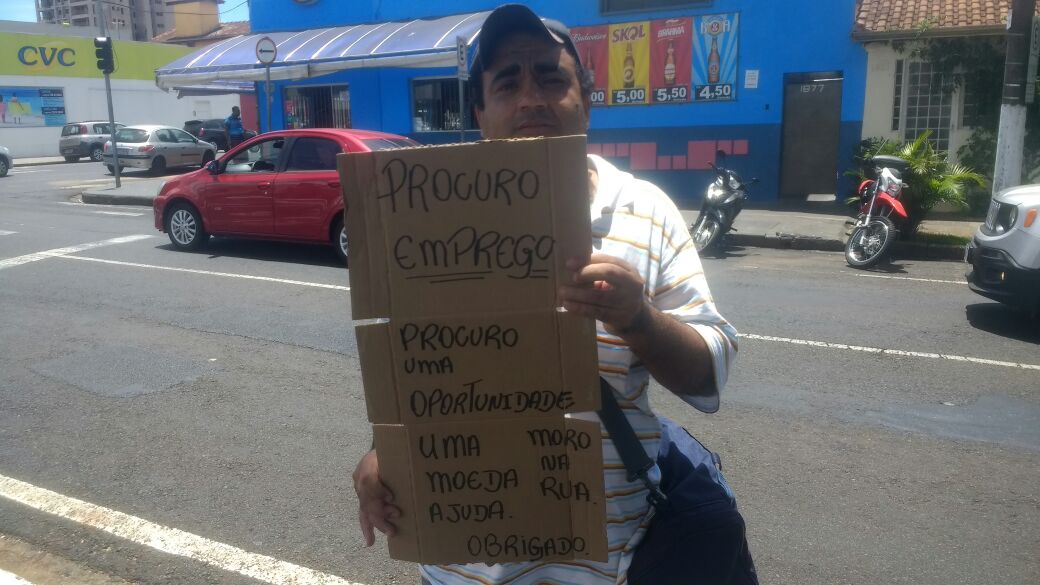 CVC
Budweiser
SKOL
BRAHMA
5,00
5,50
4,50
1877
PROCURO
EMPREGO
PROCURO
UMA
OPORTUNIDADE
UMA MORO
MOEDA NA
AJUDA. RUA.
OBRIGADO.